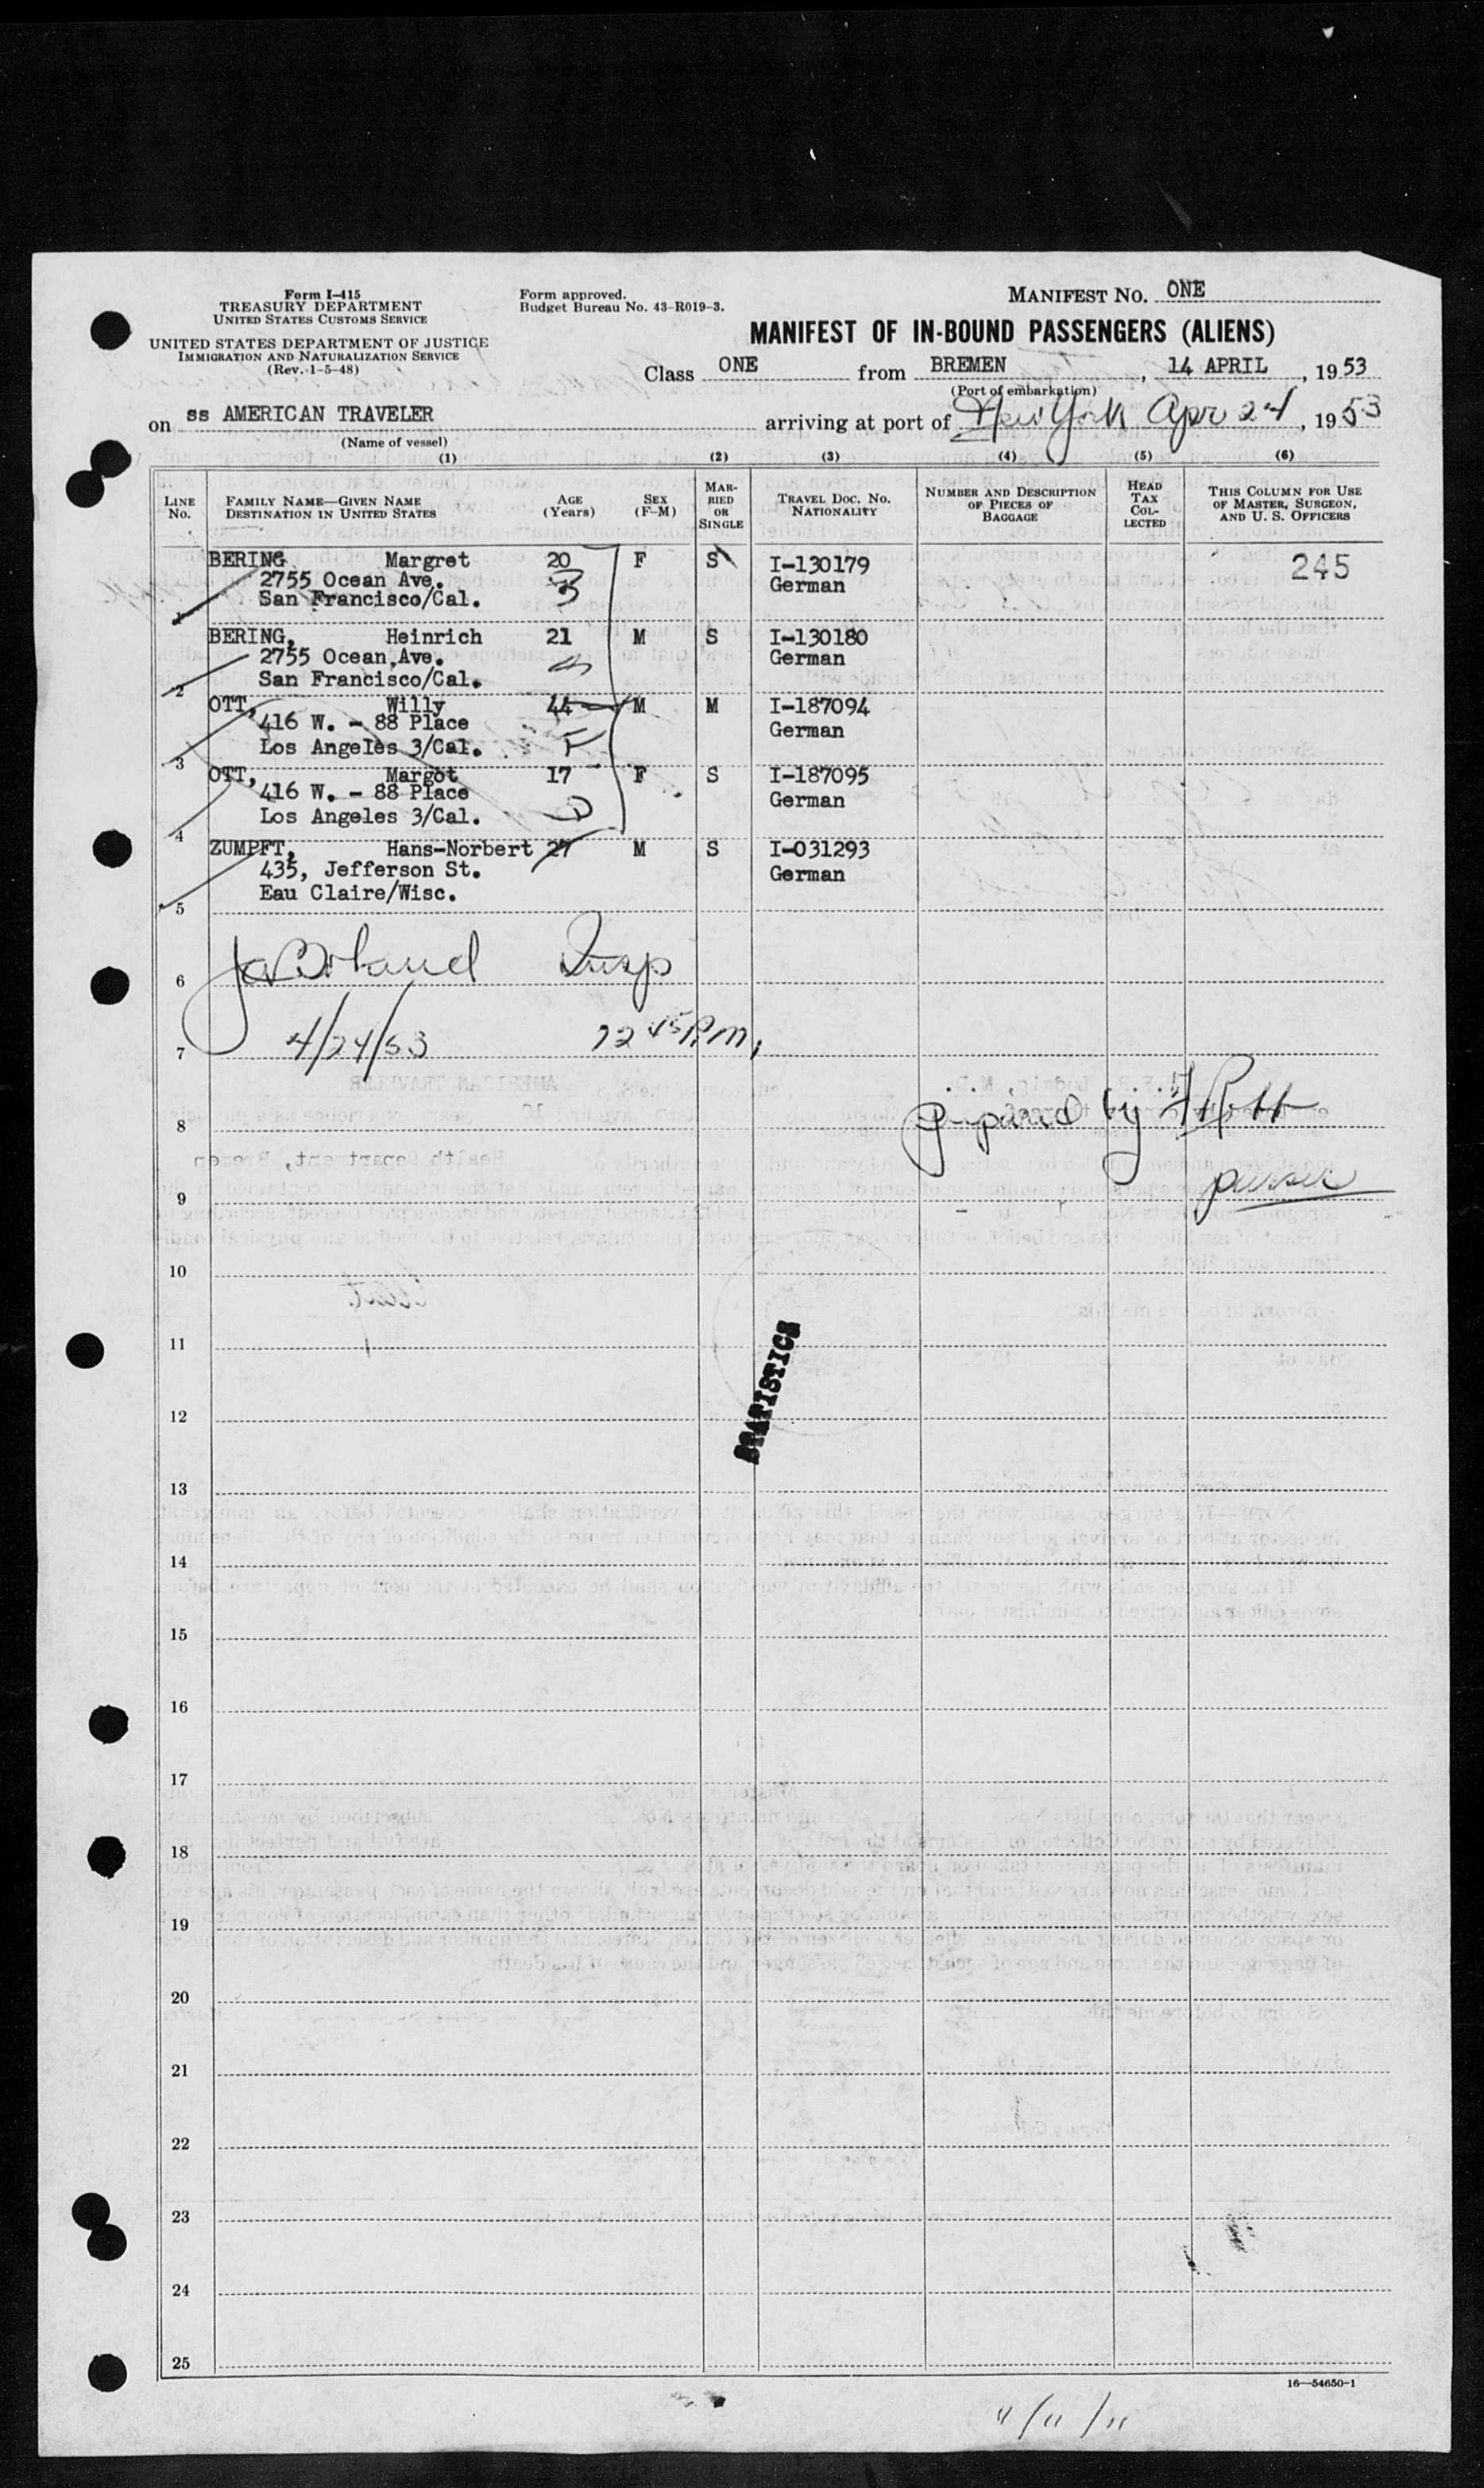 Form I-415
TREASURY DEPARTMENT
UNITED STATES CUSTOMS SERVICE
UNITED STATES DEPARTMENT OF JUSTICE
IMMIGRATION AND NATURALIZATION SERVICE
(Rev. 1-5-48)
Form approved.
Budget Bureau No. 43-R019-3.
MANIFEST NO. ONE
MANIFEST OF IN-BOUND PASSENGERS (ALIENS)
Class ONE from BREMEN, 14 APRIL, 1953
(Port of embarkation)
on ss AMERICAN TRAVELER arriving at port of New York Apr 24, 1953
(Name of vessel)
(1) (2) (3) (4) (5) (6)
LINE No.
FAMILY NAME—GIVEN NAME
DESTINATION IN UNITED STATES
AGE (Years)
SEX (F-M)
MARRIED OR SINGLE
TRAVEL DOC. NO.
NATIONALITY
NUMBER AND DESCRIPTION OF PIECES OF BAGGAGE
HEAD TAX COLLECTED
THIS COLUMN FOR USE OF MASTER, SURGEON, AND U. S. OFFICERS
BERING Margret 20 F S I-130179 245
2755 Ocean Ave. German
San Francisco/Cal.
1
BERING, Heinrich 21 M S I-130180
2755 Ocean Ave. German
San Francisco/Cal.
2
OTT, Willy 44 M M I-187094
416 W. - 88 Place German
Los Angeles 3/Cal.
3
OTT, Margot 17 F S I-187095
416 W. - 88 Place German
Los Angeles 3/Cal.
4
ZUMPFT, Hans-Norbert 27 M S I-031293
435, Jefferson St. German
Eau Claire/Wisc.
5
Insp
6
4/24/53 12 45 P.m.
7
Prepared by
8
purser
9
10
11
STATISTICS
12
13
14
15
16
17
18
19
20
21
22
23
24
25
16—54650-1
"/"/"